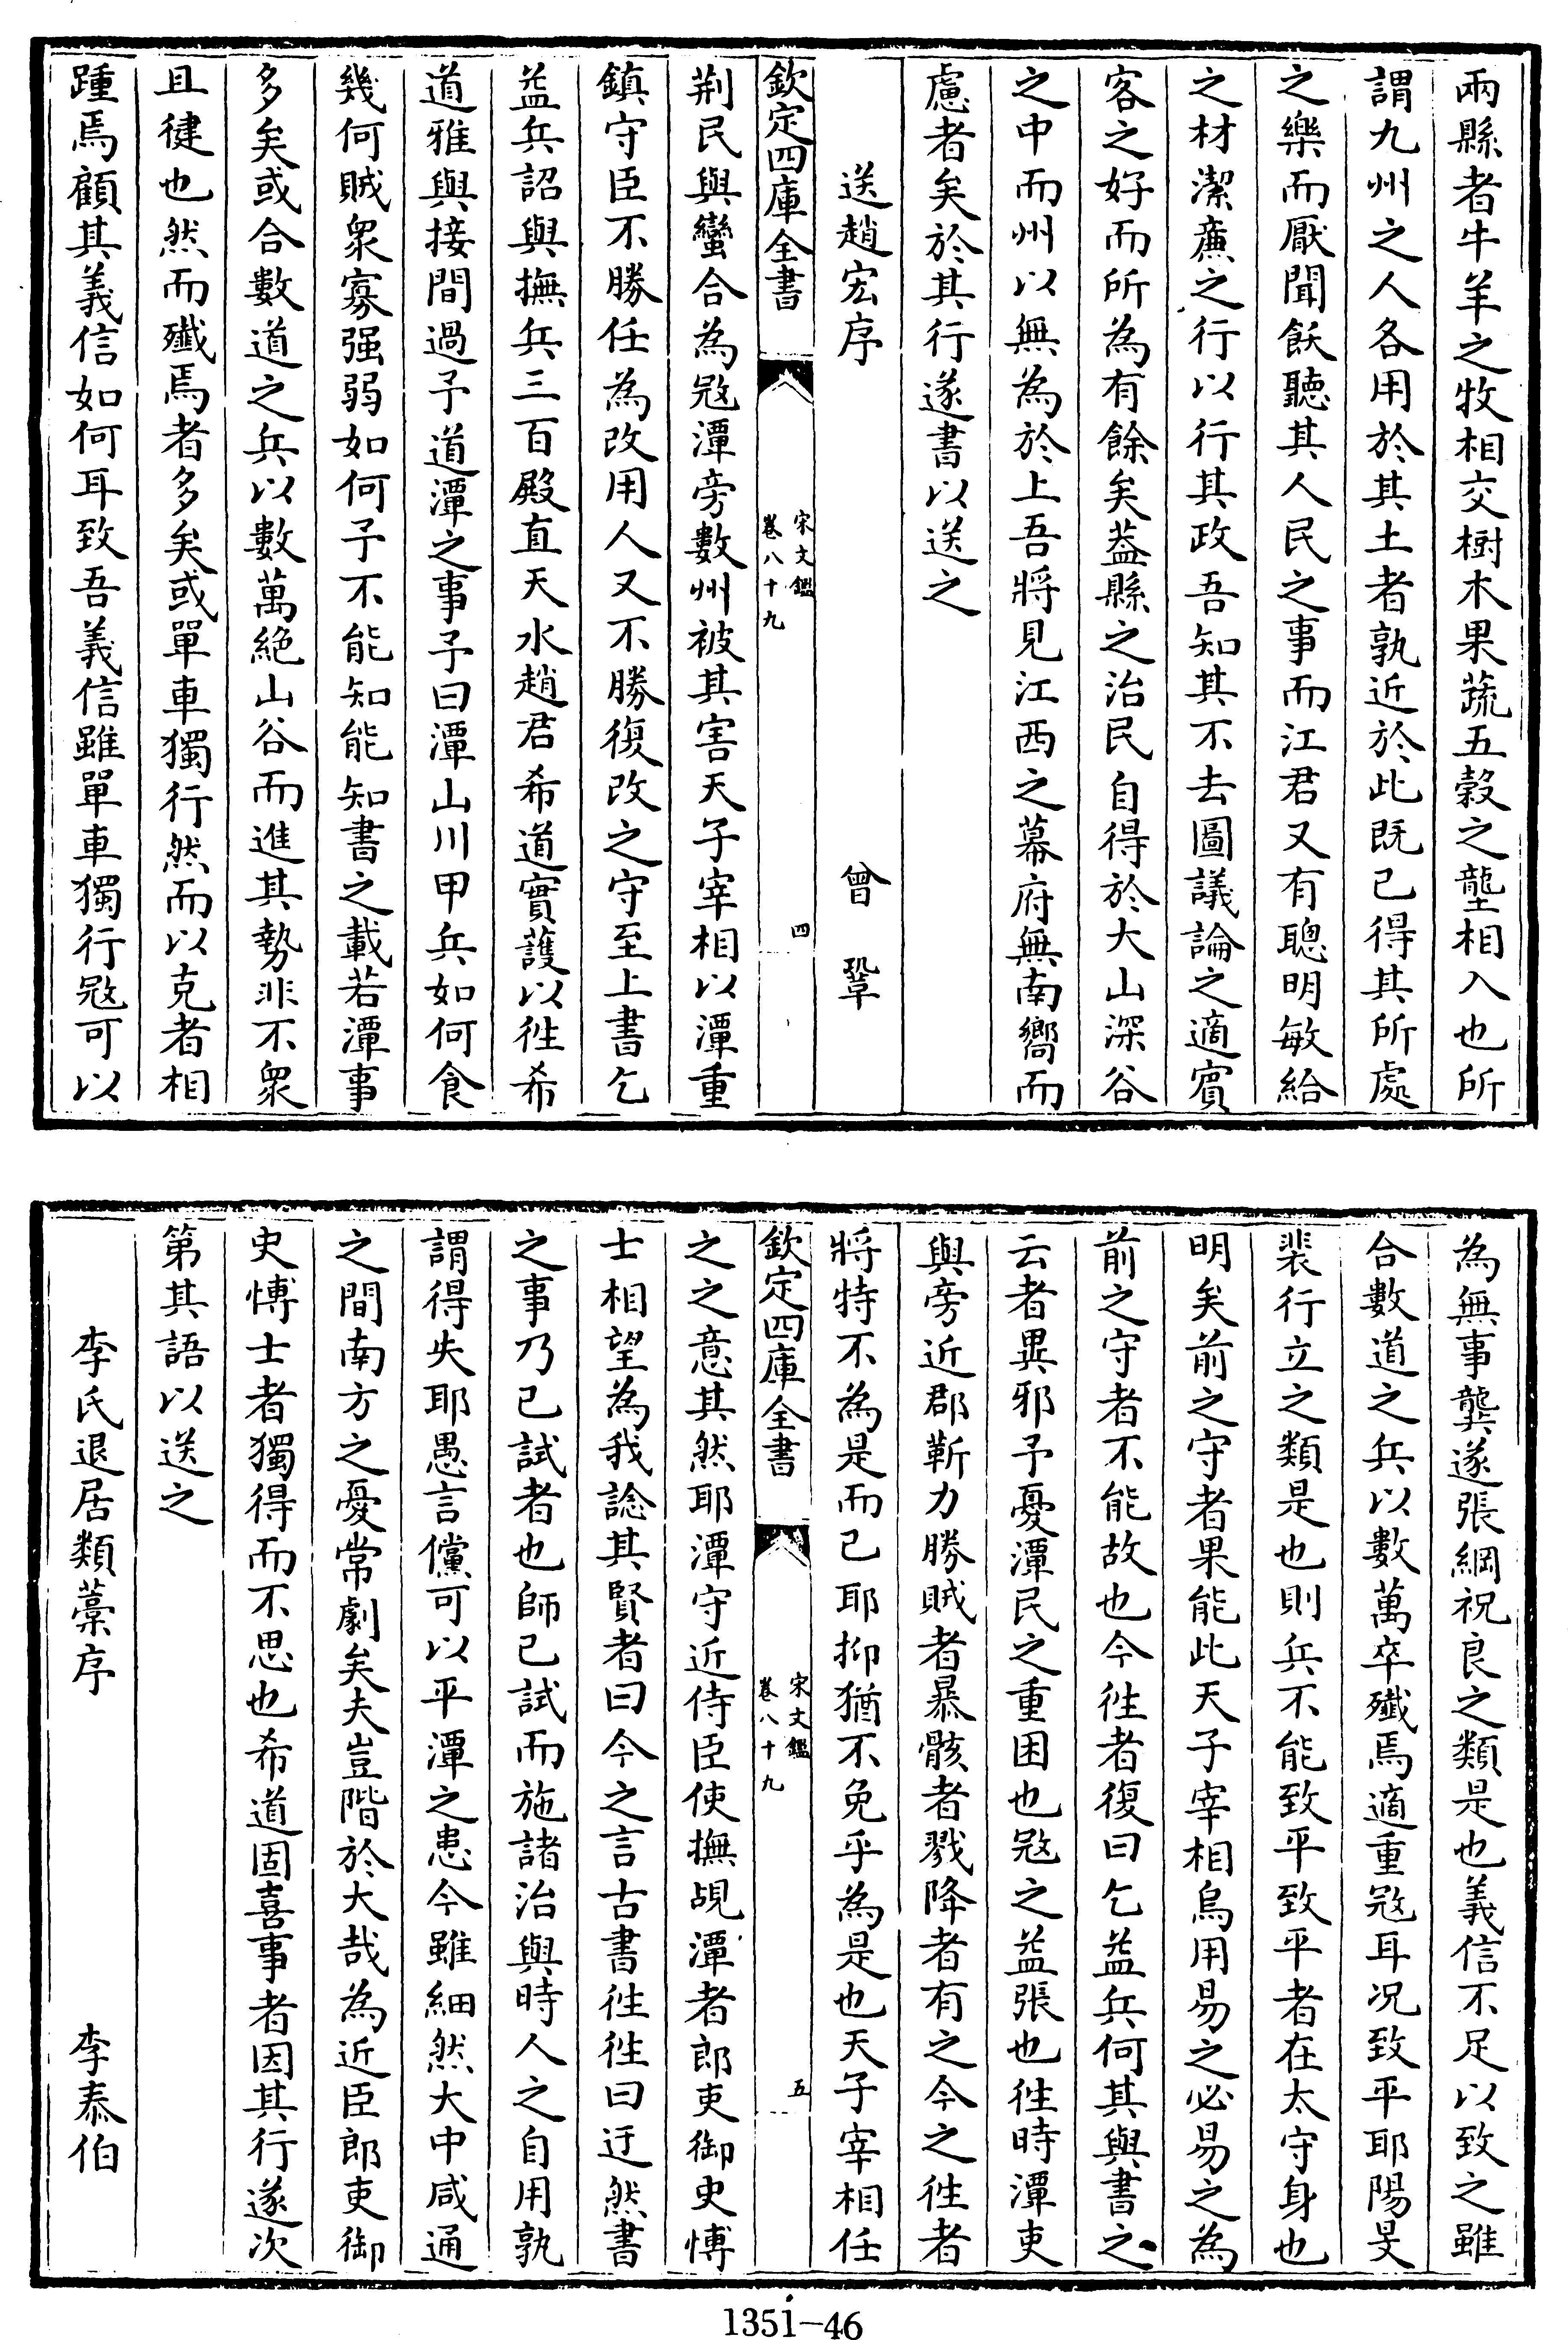 兩縣者牛羊之牧相交樹木果蔬五穀之壟相入也所
謂九州之人各用於其土者孰近於此既已得其所處
之樂而厭聞飫聽其人民之事而江君又有聰明敏給
之材潔亷之行以行其政吾知其不去圖議論之適賓
客之好而所為有餘矣葢縣之治民自得於大山深谷
之中而州以無為於上吾將見江西之幕府無南嚮而
慮者矣於其行遂書以送之
送趙宏序 曾鞏
欽定四庫全書 宋文鑑 卷八十九 四
荆民與蠻合為冦潭旁數州被其害天子宰相以潭重
鎮守臣不勝任為改用人又不勝復改之守至上書乞
益兵詔與撫兵三百殿直天水趙君希道實護以徃希
道雅與接間過予道潭之事予曰潭山川甲兵如何食
幾何賊衆寡强弱如何予不能知能知書之載若潭事
多矣或合數道之兵以數萬絶山谷而進其勢非不衆
且健也然而殱焉者多矣或單車獨行然而以克者相
踵焉顧其義信如何耳致吾義信雖單車獨行冦可以
為無事龔遂張綱祝良之類是也義信不足以致之雖
合數道之兵以數萬卒殱焉適重冦耳况致平耶陽旻
裴行立之類是也則兵不能致平致平者在太守身也
明矣前之守者果能此天子宰相烏用易之必易之為
前之守者不能故也今徃者復曰乞益兵何其與書之
云者異邪予憂潭民之重困也冦之益張也徃時潭吏
與旁近郡靳力勝賊者暴骸者戮降者有之今之徃者
將特不為是而已耶抑猶不免乎為是也天子宰相任
欽定四庫全書 宋文鑑 卷八十九 五
之之意其然耶潭守近侍臣使撫覘潭者郎吏御史愽
士相望為我諗其賢者曰今之言古書徃徃曰迂然書
之事乃已試者也師已試而施諸治與時人之自用孰
謂得失耶愚言儻可以平潭之患今雖細然大中咸通
之間南方之憂常劇矣夫豈階於大哉為近臣郎吏御
史愽士者獨得而不思也希道固喜事者因其行遂次
第其語以送之
李氏退居類藁序 李泰伯
1351-46